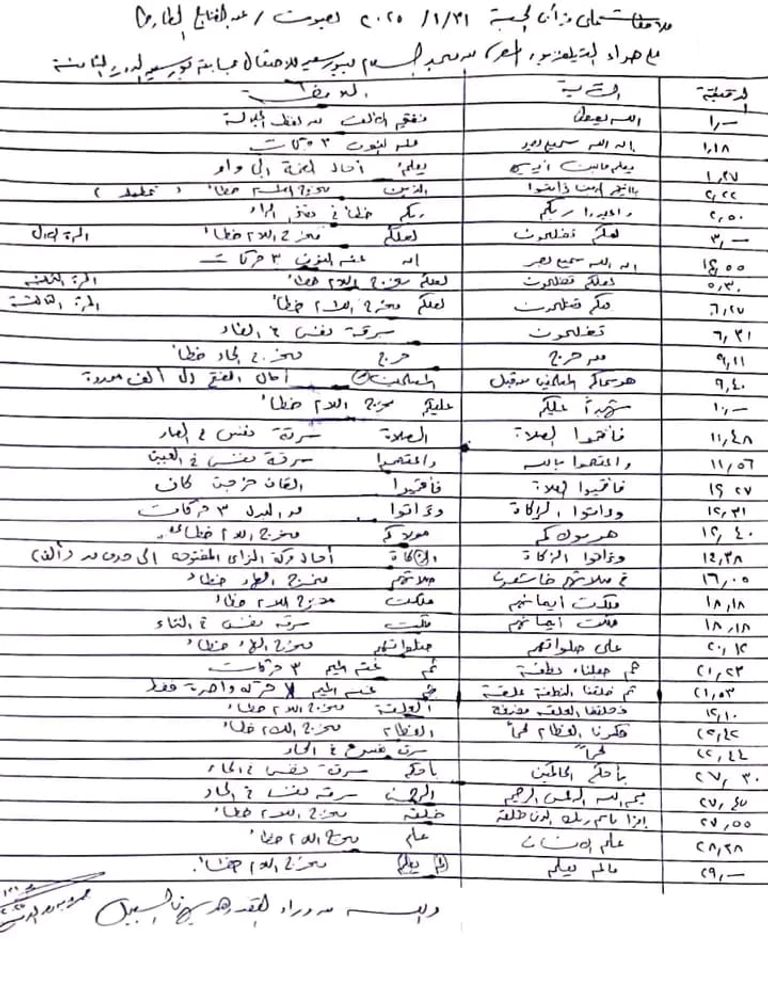 ملاحظات على قرآن الجمعة ٣١/١/٢٠٢٥ بصوت / عبد الفتاح الطاروطي
على هواء التليفزيون المصرى من مسجد السلام ببورسعيد للاحتفال بمسابقة بورسعيد الدورة الثامنة
الدقيقة الآية الملاحظة
١,٠٠ الله يصطفى تفخيم الألف من لفظ الجلالة
١,١٨ إن الله سميع بصير غنه النون ٣ حركات
١,٢٧ يعلم ما بين أيديهم يعلم أمال الضمة إلى واو
٢,٢٢ يا أيها الذين ءامنوا الذين مخرج خطأ ( تمطيط )
٢,٥٠ واعبدوا ربكم ربكم خطأ فى الراء
٣,٠٠ لعلكم تفلحون لعلكم مخرج اللام خطأ المرة الأولى
٤,٥٥ إن الله سميع بصير إن غنه النون ٣ حركات
٥,٣٠ لعلكم تفلحون لعلكم مخرج اللام خطأ المرة الثانية
٦,٢٧ لعلكم تفلحون لعلكم مخرج اللام خطأ المرة الثالثة
٦,٣١ تفلحون سرقة نفس فى الفاء
٩,٢١ من حرج حرج مخرج الحاء خطأ
٩,٤٠ هو سماكم المسلمين من قبل المسلمين أمال الفتح إلى ألف ممدودة
١٠,٠٠ شهيداً عليكم عليكم مخرج اللام خطأ
١١,٤٨ فأقيموا الصلاة الصلاة سرقة نفس فى الصاد
١١,٥٦ واعتصموا بالله واعتصموا سرقة نفس فى العين
١٢,٢٧ فأقيموا الصلاة فأقيموا القاف خرجت كاف
١٢,٣١ وءاتوا الزكاة وءاتوا مد البدل ٣ حركات
١٢,٤٠ هو مولاكم مولاكم مخرج اللام خطأ
١٤,٣٨ وءاتوا الزكاة الزكاة أمال حركة الزاى المفتوحة إلى حرف مد (ألف)
١٦,٠٥ فى صلاتهم خاشعون صلاتهم مخرج خطأ
١٨,١٨ ملكت أيمانهم ملكت مخرج اللام خطأ
١٨,١٨ ملكت أيمانهم ملكت سرقة نفس فى التاء
٢٠,١٢ على صلواتهم صلواتهم مخرج خطأ
٢١,٢٣ ثم جعلناه نطفة ثم غنه الميم ٣ حركات
٢١,٥٣ ثم خلقنا النطفة علقة ثم غنه الميم حركه واحدة فقط
٢٢,١٠ فخلقنا العلقة مضغة العلقة مخرج اللام خطأ
٢٢,٤٢ فكسونا العظام لحماً العظام مخرج اللام خطأ
٢٢,٤٤ لحماً سرقة نفس فى الحاء
٢٧,٣٠ بأحكم الحاكمين بأحكم سرقة نفس فى الحاء
٢٧,٤٥ بسم الله الرحمن الرحيم الرحمن سرقة نفس فى الحاء
٢٧,٥٥ اقرأ باسم ربك الذى خلق خلق مخرج اللام خطأ
٢٨,٢٨ علم الإنسان علم مخرج اللام خطأ
٢٩,٠٠ مالم يعلم لم يعلم مخرج اللام خطأ
والله من وراء القصد وهو يهدى السبيل